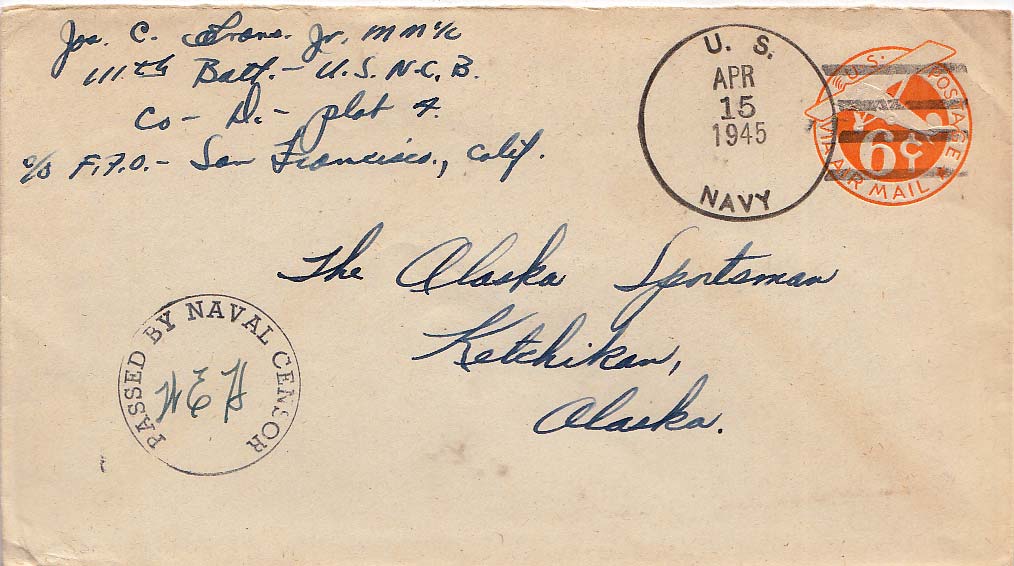 Jos. C. Evans. Jr. MM 1/c
111th Batt. - U.S.N.C.B.
Co - D. - plat 4.
c/o F.P.O. - San Francisco, Calif.
U. S.
APR
15
1945
NAVY
U.S. POSTAGE
6¢
VIA AIR MAIL
The Alaska Sportsman
Ketchikan,
Alaska.
PASSED BY NAVAL CENSOR